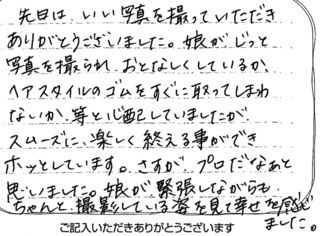 先日は、いい写真を撮っていただき
ありがとうございました。娘がじっと
写真を撮られ、おとなしくしているか、
ヘアスタイルのゴムをすぐに取ってしまわ
ないか、等と心配していましたが、
スムーズに、楽しく終える事ができ
ホッとしています。さすが、プロだなぁと
思いました。娘が緊張しながらも、
ちゃんと、撮影している姿を見て幸せを感じ
ました。
ご記入いただきありがとうございます